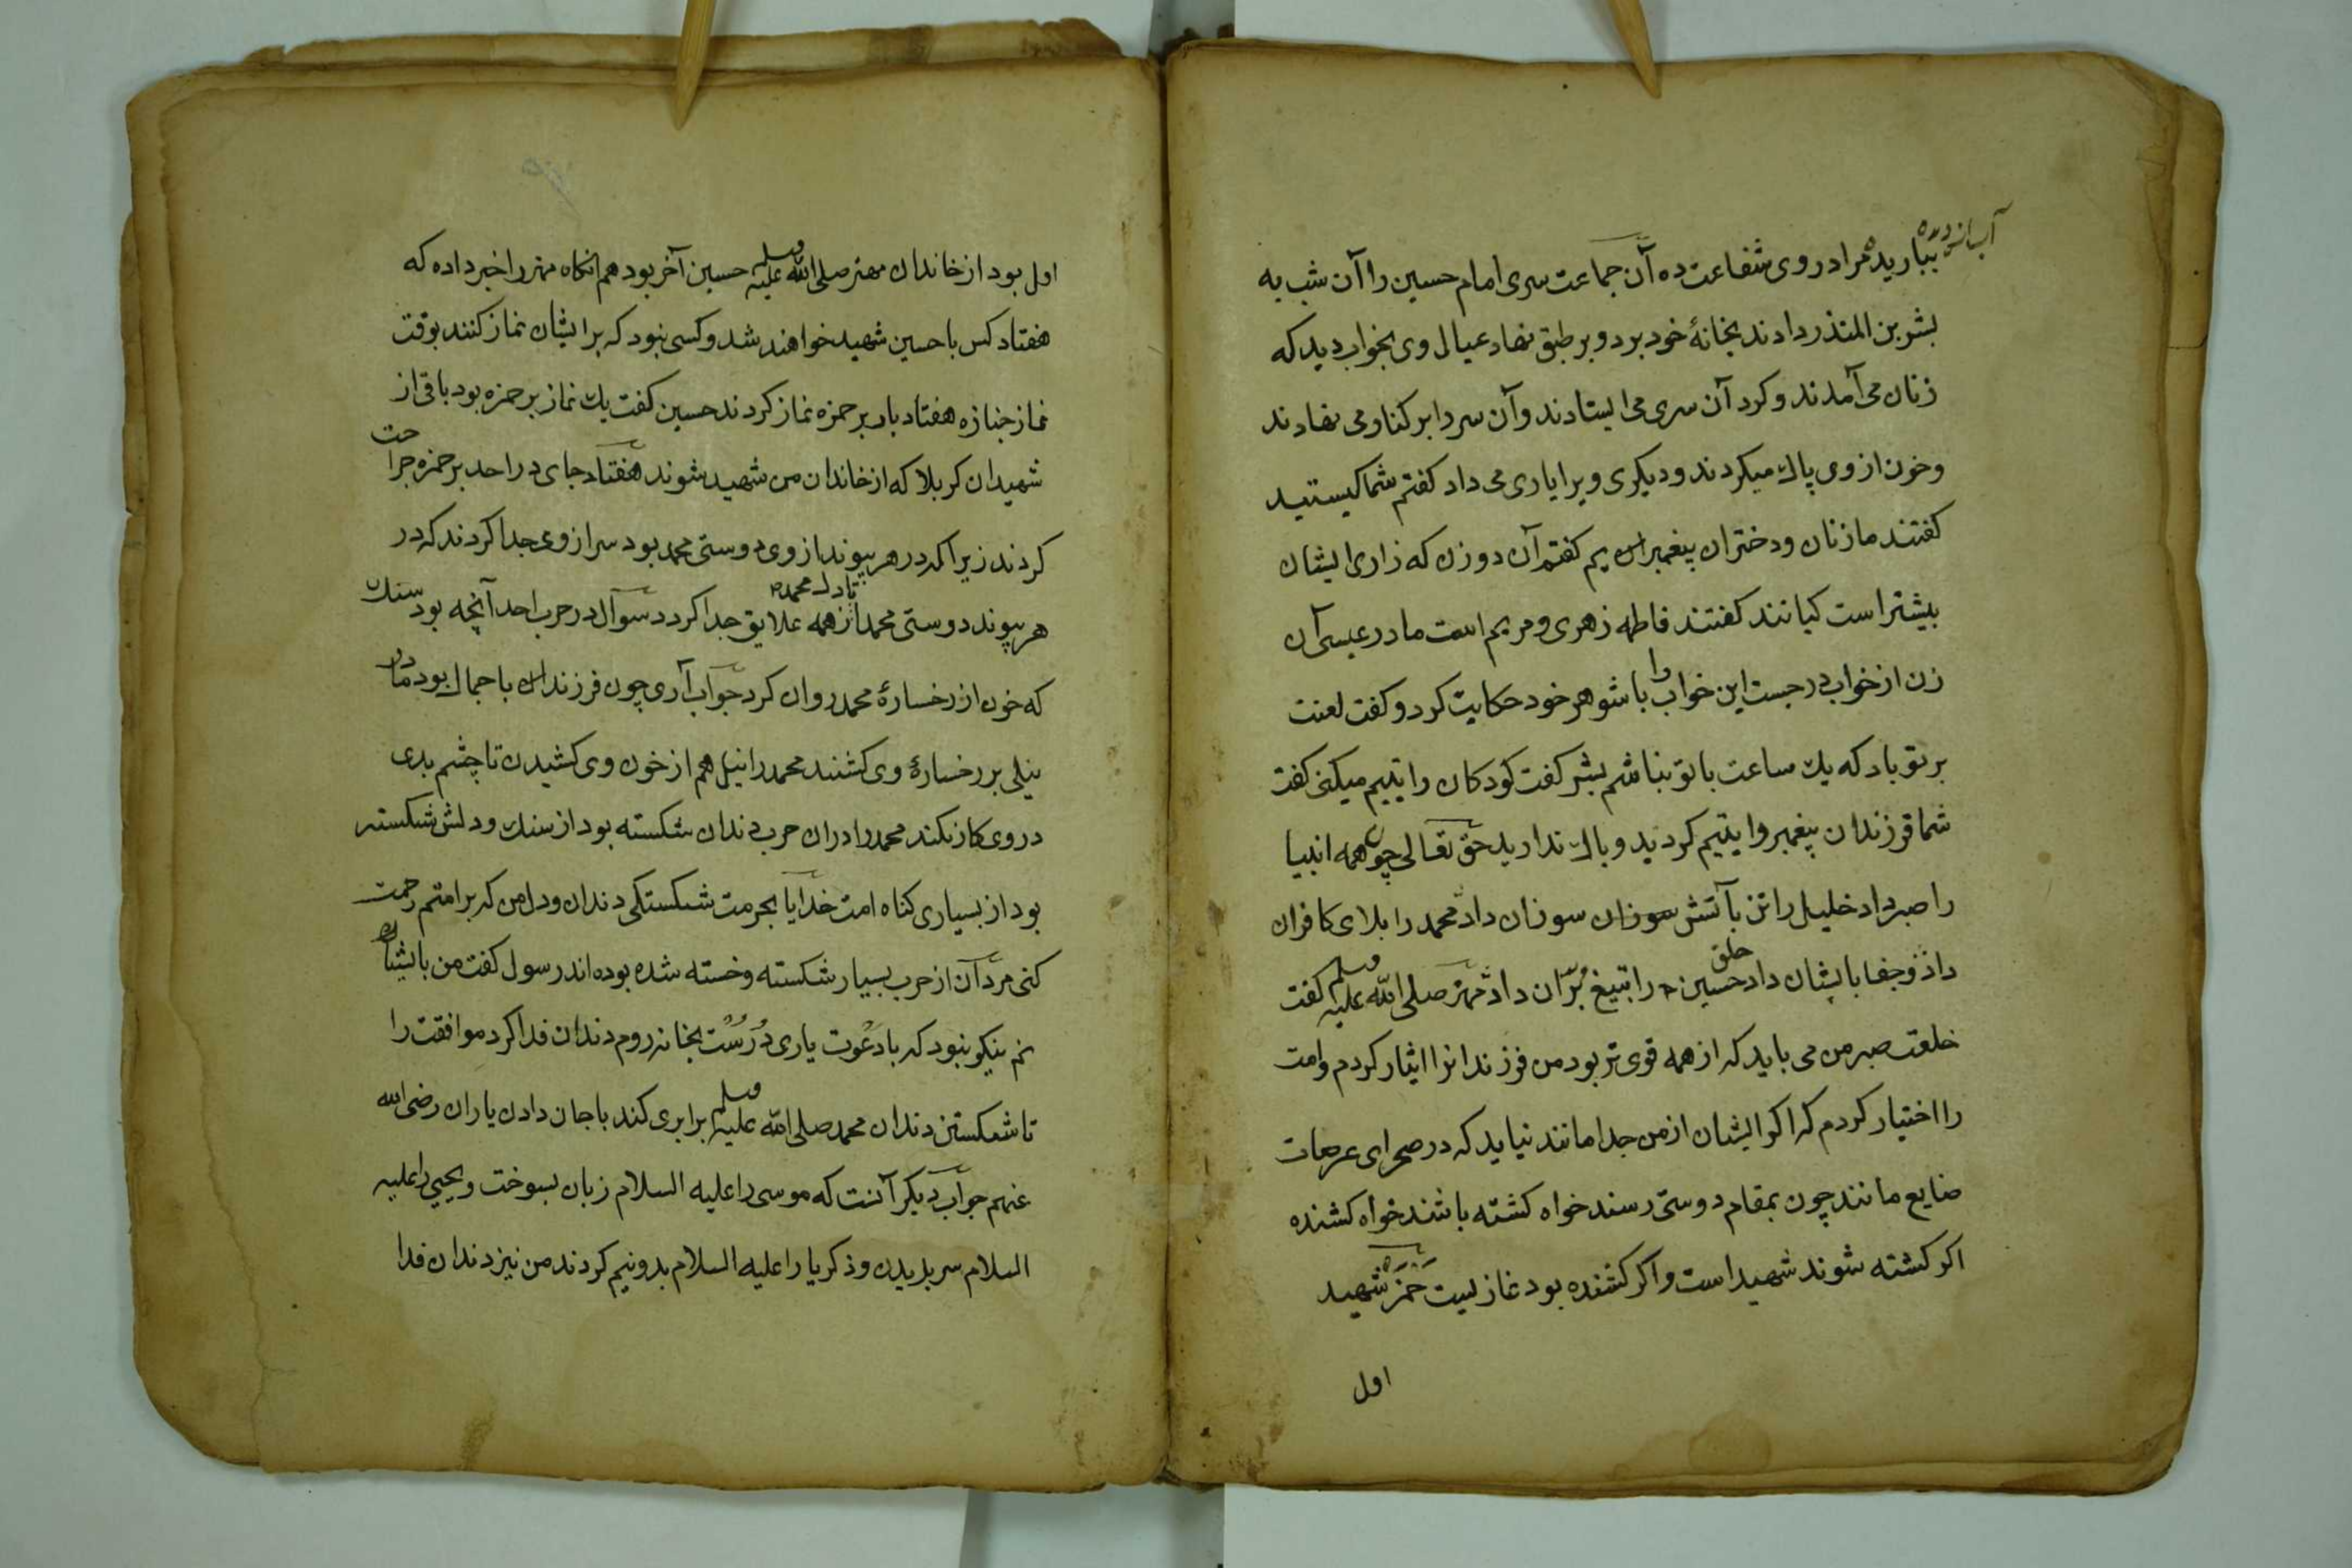 بباریده مرا در روی شفاعت ده آن جماعت سری امام حسین را آن شب به
بشر بن المنذر دادند بخانهٔ خود برد و بر طبق نهاد عیال وی بخواب دید که
زنان می آمدند و کرد آن سری می ایستادند و آن سر را بر کنار می نهادند
و خون از وی پاک میکردند و دیکری ویرا یاری می داد کفتم شما کیستید
کفتند ما زنان و دختران پیغمبران یم کفتم آن دو زن که زاری ایشان
بیشتر است کیانند کفتند فاطمه زهری و مریم است مادر عیسی آن
زن از خواب در جست این خواب را با شوهر خود حکایت کرد و کفت لعنت
بر تو باد که یک ساعت با تو نباشم بشر کفت کودکان را یتیم میکنی کفت
شما فرزندان پیغمبر را یتیم کردید و باک ندارید حق تعالی چون همه انبیا
را صبر داد خلیل را تن بآتش سوزان سوزان داد محمد را بلای کافران
داد و جفا بایشان داد حسین را حلق بتیغ برّان داد مهتر صلی الله علیه وسلم کفت
خلعت صبر من می باید که از همه قوی تر بود من فرزندانرا ایثار کردم و امت
را اختیار کردم که اکر ایشان از من جدا مانند نیاید که در صحرای عرصات
ضایع مانند چون بمقام دوستی رسند خواه کشته باشند خواه کشنده
اکر کشته شوند شهید است و اکر کشنده بود غازیست حَمزَه شهید
اول
اول بود از خاندان مهتر صلی الله علیه وسلم حسین آخر بود هم انکاه مهتر را خبر داده که
هفتاد کس با حسین شهید خواهند شد و کسی نبود که بر ایشان نماز کنند بوقت
نماز جنازه هفتاد بار بر حمزه نماز کردند حسین کفت یک نماز بر حمزه بود باقی از
شهیدان کربلا که از خاندان من شهید شوند هفتاد جای در احد بر حمزه جراحت
کردند زیرا که در هر پیوند از وی دوستی محمد بود سر از وی جدا کردند که در
هر پیوند دوستی محمد از همه علایق جدا کردد سوآل در حرب احد آنچه بود سنک
که خون از رخسارهٔ محمد روان کرد جواب آری چون فرزندان با جمال بود مادر
نیلی بر رخسارهٔ وی کشند محمد را نیل هم از خون وی کشیدن تا چشم بدی
در وی کار نکند محمد را در ان حرب دندان شکسته بود از سنک و دلش شکسته
بود از بسیاری کناه امت خدایا بحرمت شکستکی دندان و دل من که بر امتم رحمت
کنی مردآن از حرب بسیار شکسته و خسته شده بوده اند رسول کفت من بایشان
نم نیکو نبود که با دَعْوت یاری دُرُسْت بخانه روم دندان فدا کرد موافقت را
تا شکستن دندان محمد صلی الله علیه وسلم برابری کند با جان دادن یاران رضی الله
عنهم جواب دیکر آنست که موسی را علیه السلام زبان بسوخت و یحیی را علیه
السلام سر بریدن و ذکریا را علیه السلام بدو نیم کردند من نیز دندان فدا